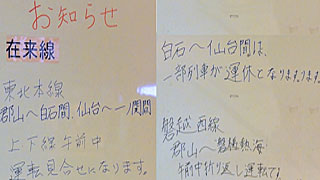 お知らせ
在来線
東北本線
郡山〜白石間、仙台〜一ノ関間
上下線午前中
運転見合せになります。
白石〜仙台間は、
一部列車が運休となります。
磐越西線
郡山〜磐梯熱海
午前中折り返し運転です